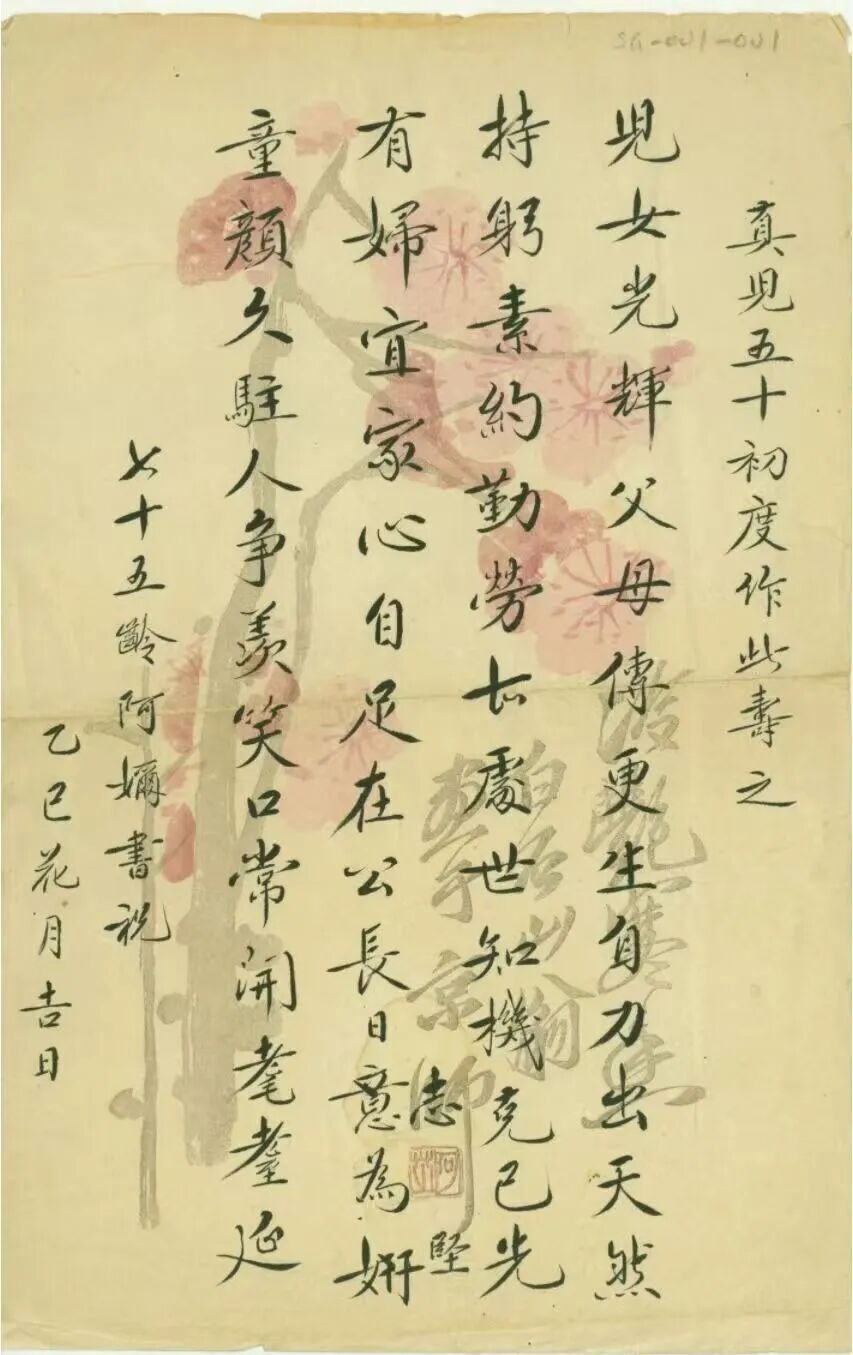 SG-001-001
真児五十初度作此壽之
児女光輝父母傳更生自力出天然
持躬素約勤勞長處世知機克己先
有婦宜家心自足在公長日意為妍
志堅
童顏久駐人争羨笑口常開耄耋延
七十五齡阿嬭書祝
乙巳花月吉日
白石山翁